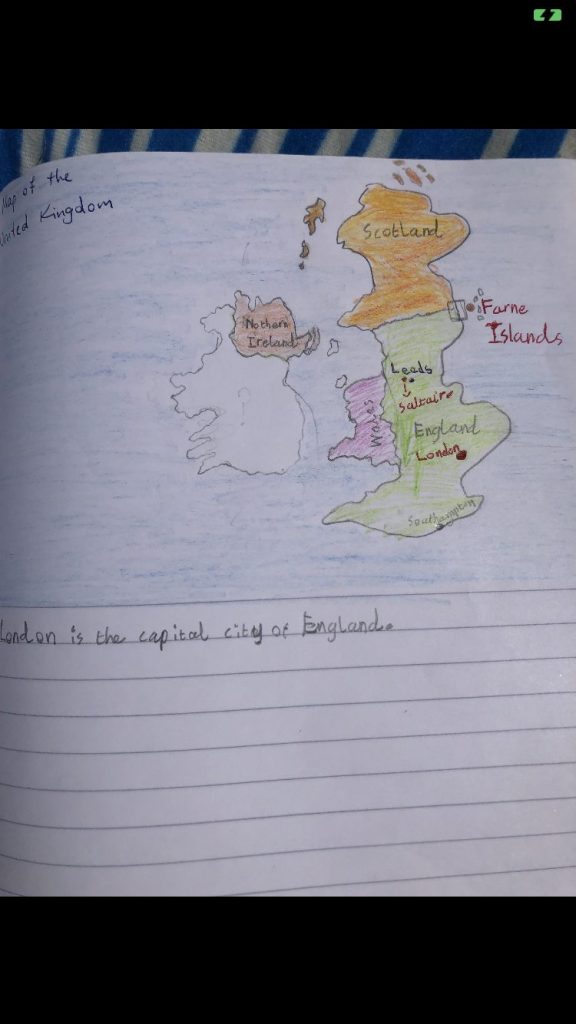 Map of the
United Kingdom
Scotland
Farne
Islands
Nothern
Ireland
Leads
Saltaire
Wales
England
London
Southampton
London is the capital city of England.